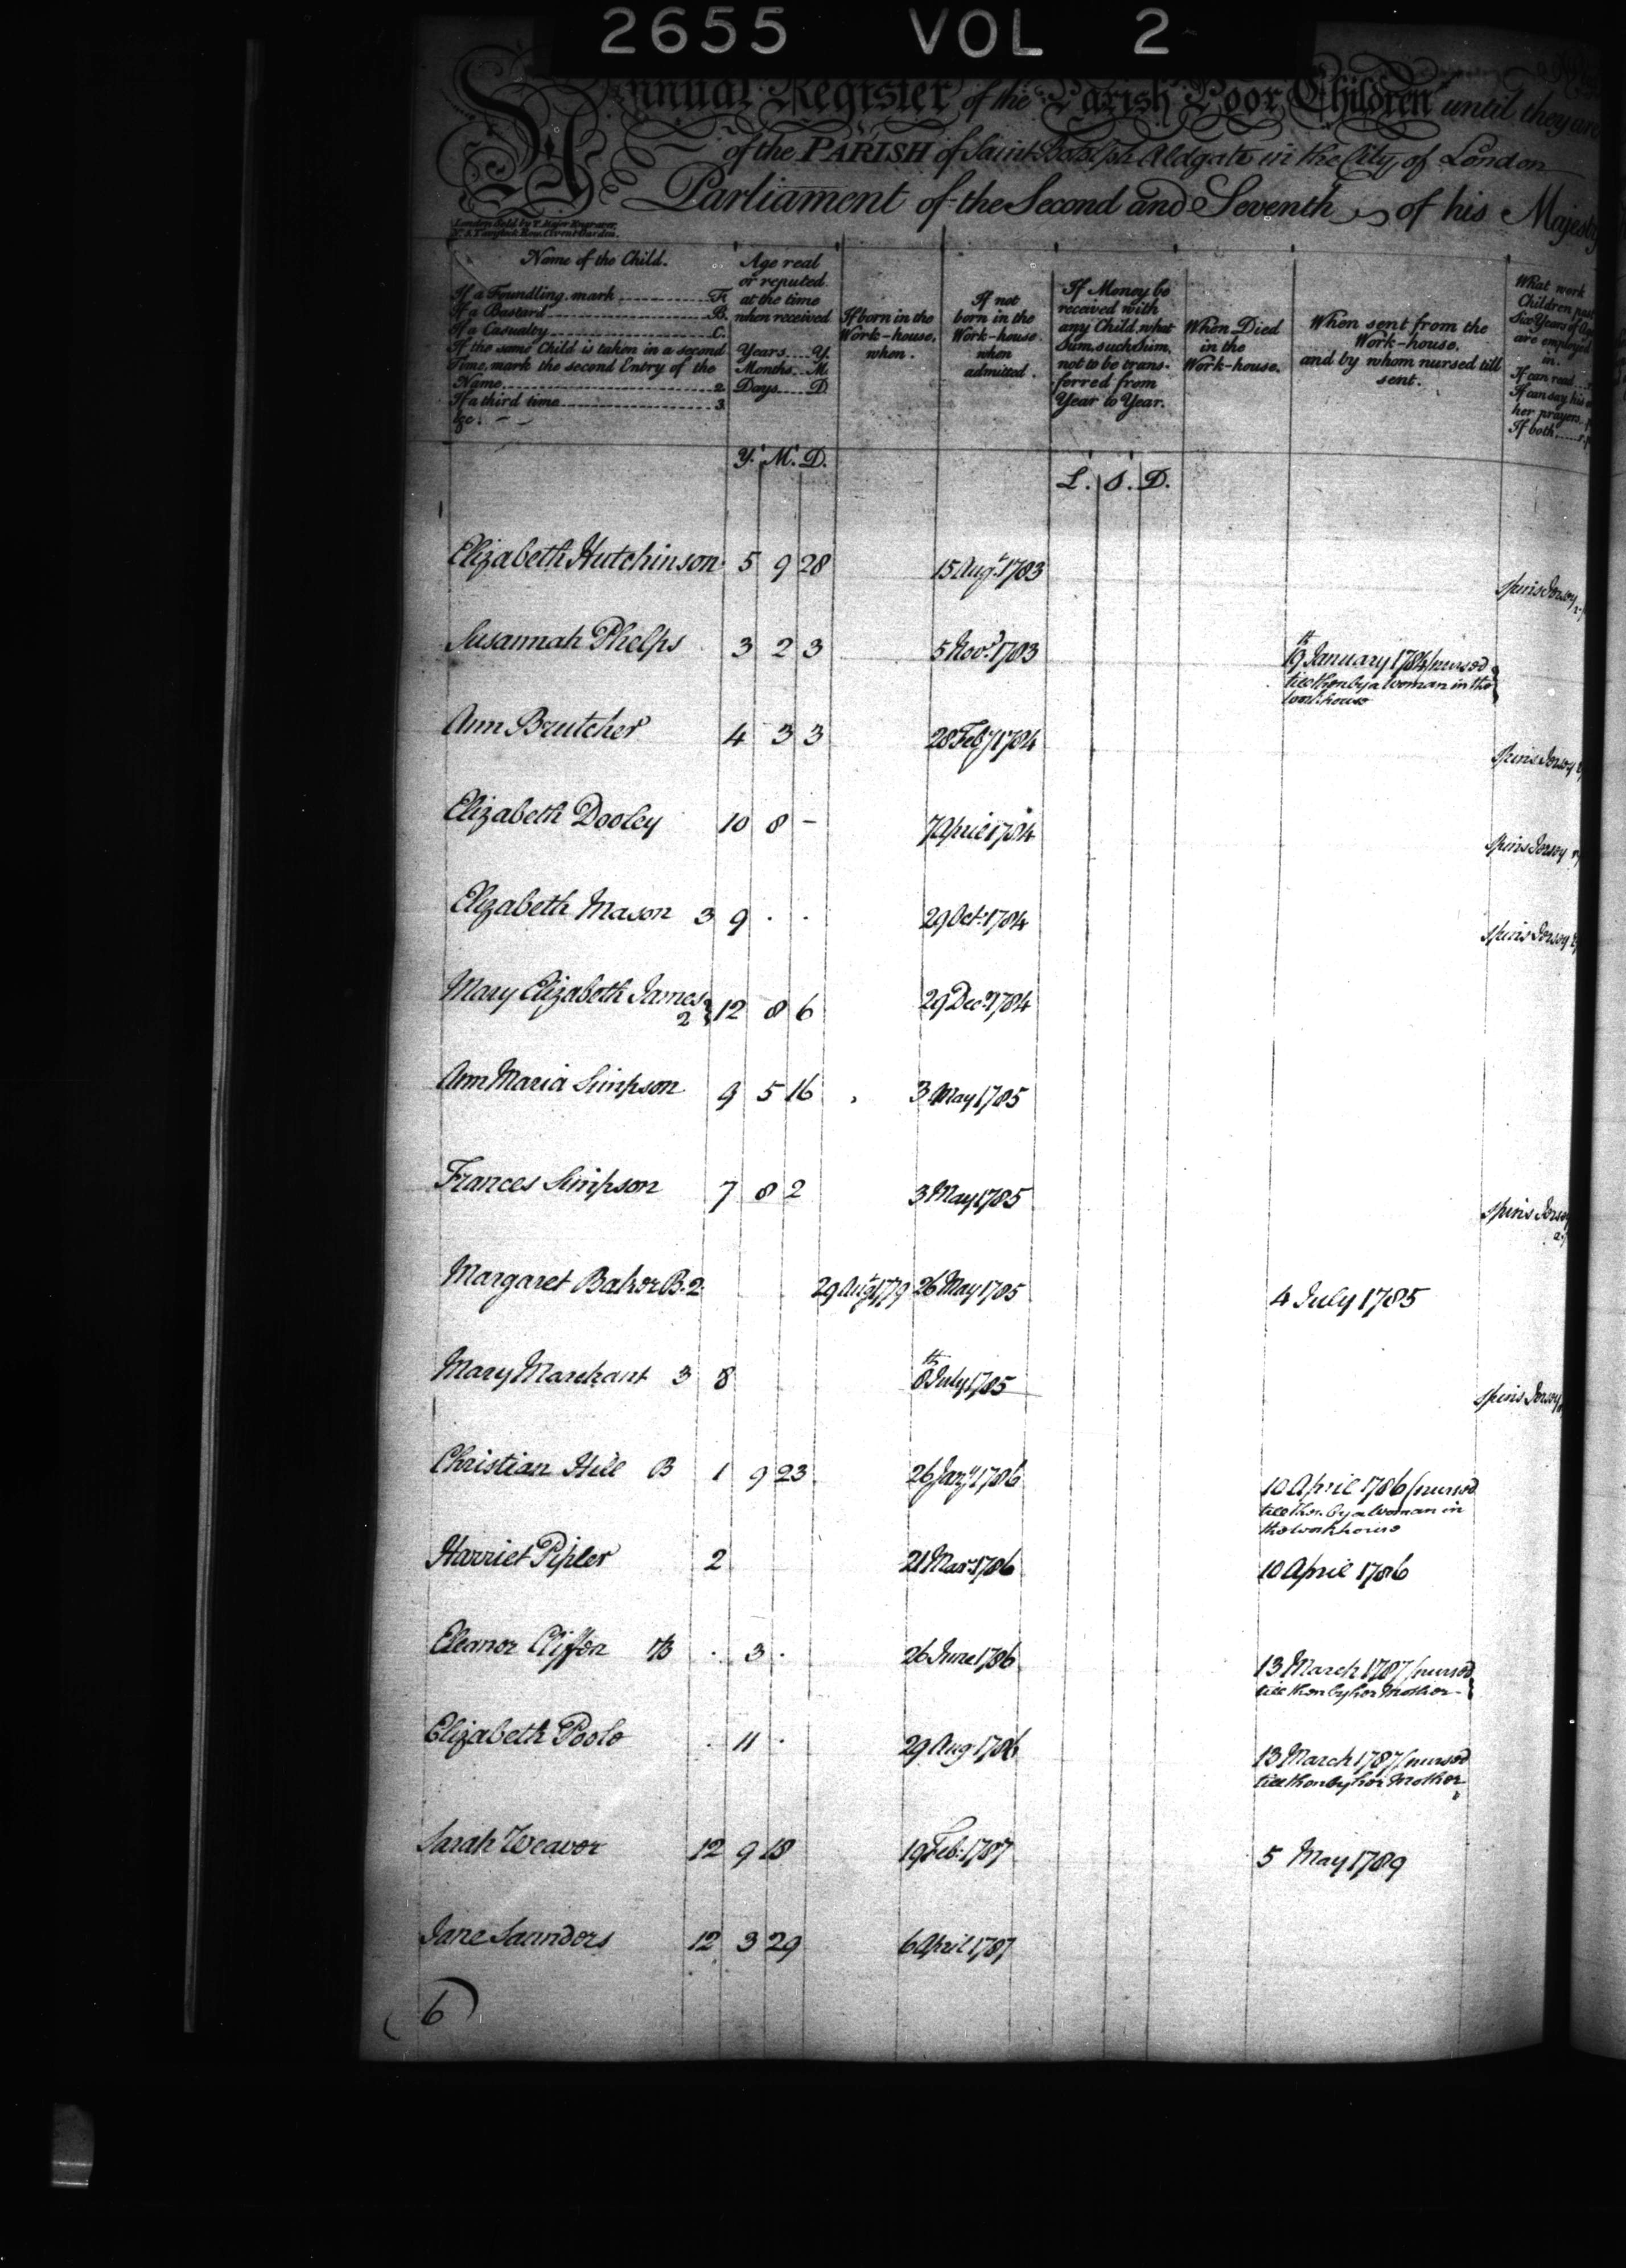 2655 VOL 2
Annual Register of the Parish Poor Children until they are
of the PARISH of Saint Botolph Aldgate in the City of London
Parliament of the Second and Seventh of his Majesty
Name of the Child.
If a Foundling, mark F.
If a Bastard B.
If a Casualty C.
If the same Child is taken in a second
Time, mark the second Entry of the
Name 2
If a third time 3
&c.
Age real
or reputed
at the time
when received
Years Y.
Months M
Days D
If born in the
Work-house,
when.
If not
born in the
Work-house
when
admitted.
If Money be
received with
any Child, what
Sum, such Sum,
not to be trans-
ferred from
Year to Year.
When Died
in the
Work-house.
When sent from the
Work-house,
and by whom nursed till
sent.
What work
Children past
Six Years of Age
are employed
in.
If can read
If can say his or
her prayers
If both
Y. M. D.
L. S. D.
Elizabeth Hutchinson 5 9 28 15 Augt. 1783 Spins Jersey
Susannah Phelps 3 2 3 5 Novr. 1783 19th January 1784 / nursed
till then by a Woman in the
workhouse
Ann Brutcher 4 3 3 28 Feby 1784 Spins Jersey
Elizabeth Dooley 10 8 – 7 April 1784 Spins Jersey
Elizabeth Mason 3 9 . . 29 Oct. 1784 Spins Jersey
Mary Elizabeth James 2 12 8 6 29 Decr. 1784
Ann Maria Simpson 9 5 16 3 May 1785
Frances Simpson 7 8 2 3 May 1785 Spins Jersey
Margaret Baker B. 2 29 Augt 1779 26 May 1785 4 July 1785
Mary Marchant 3 8 8th July 1785 Spins Jersey
Christian Hill B 1 9 23 26 Jany 1786 10 April 1786 / nursed
till then by a Woman in
the workhouse
Harriet Pipler 2 21 Mar. 1786 10 April 1786
Eleanor Clifton B . 3 . 26 June 1786 13 March 1787 / nursed
till then by her Mother
Elizabeth Poole . 11 . 29 Aug 1786 13 March 1787 / nursed
till then by her Mother
Sarah Weaver 12 9 18 19 Feb. 1787 5 May 1789
Jane Saunders 12 3 29 6 April 1787
(6)